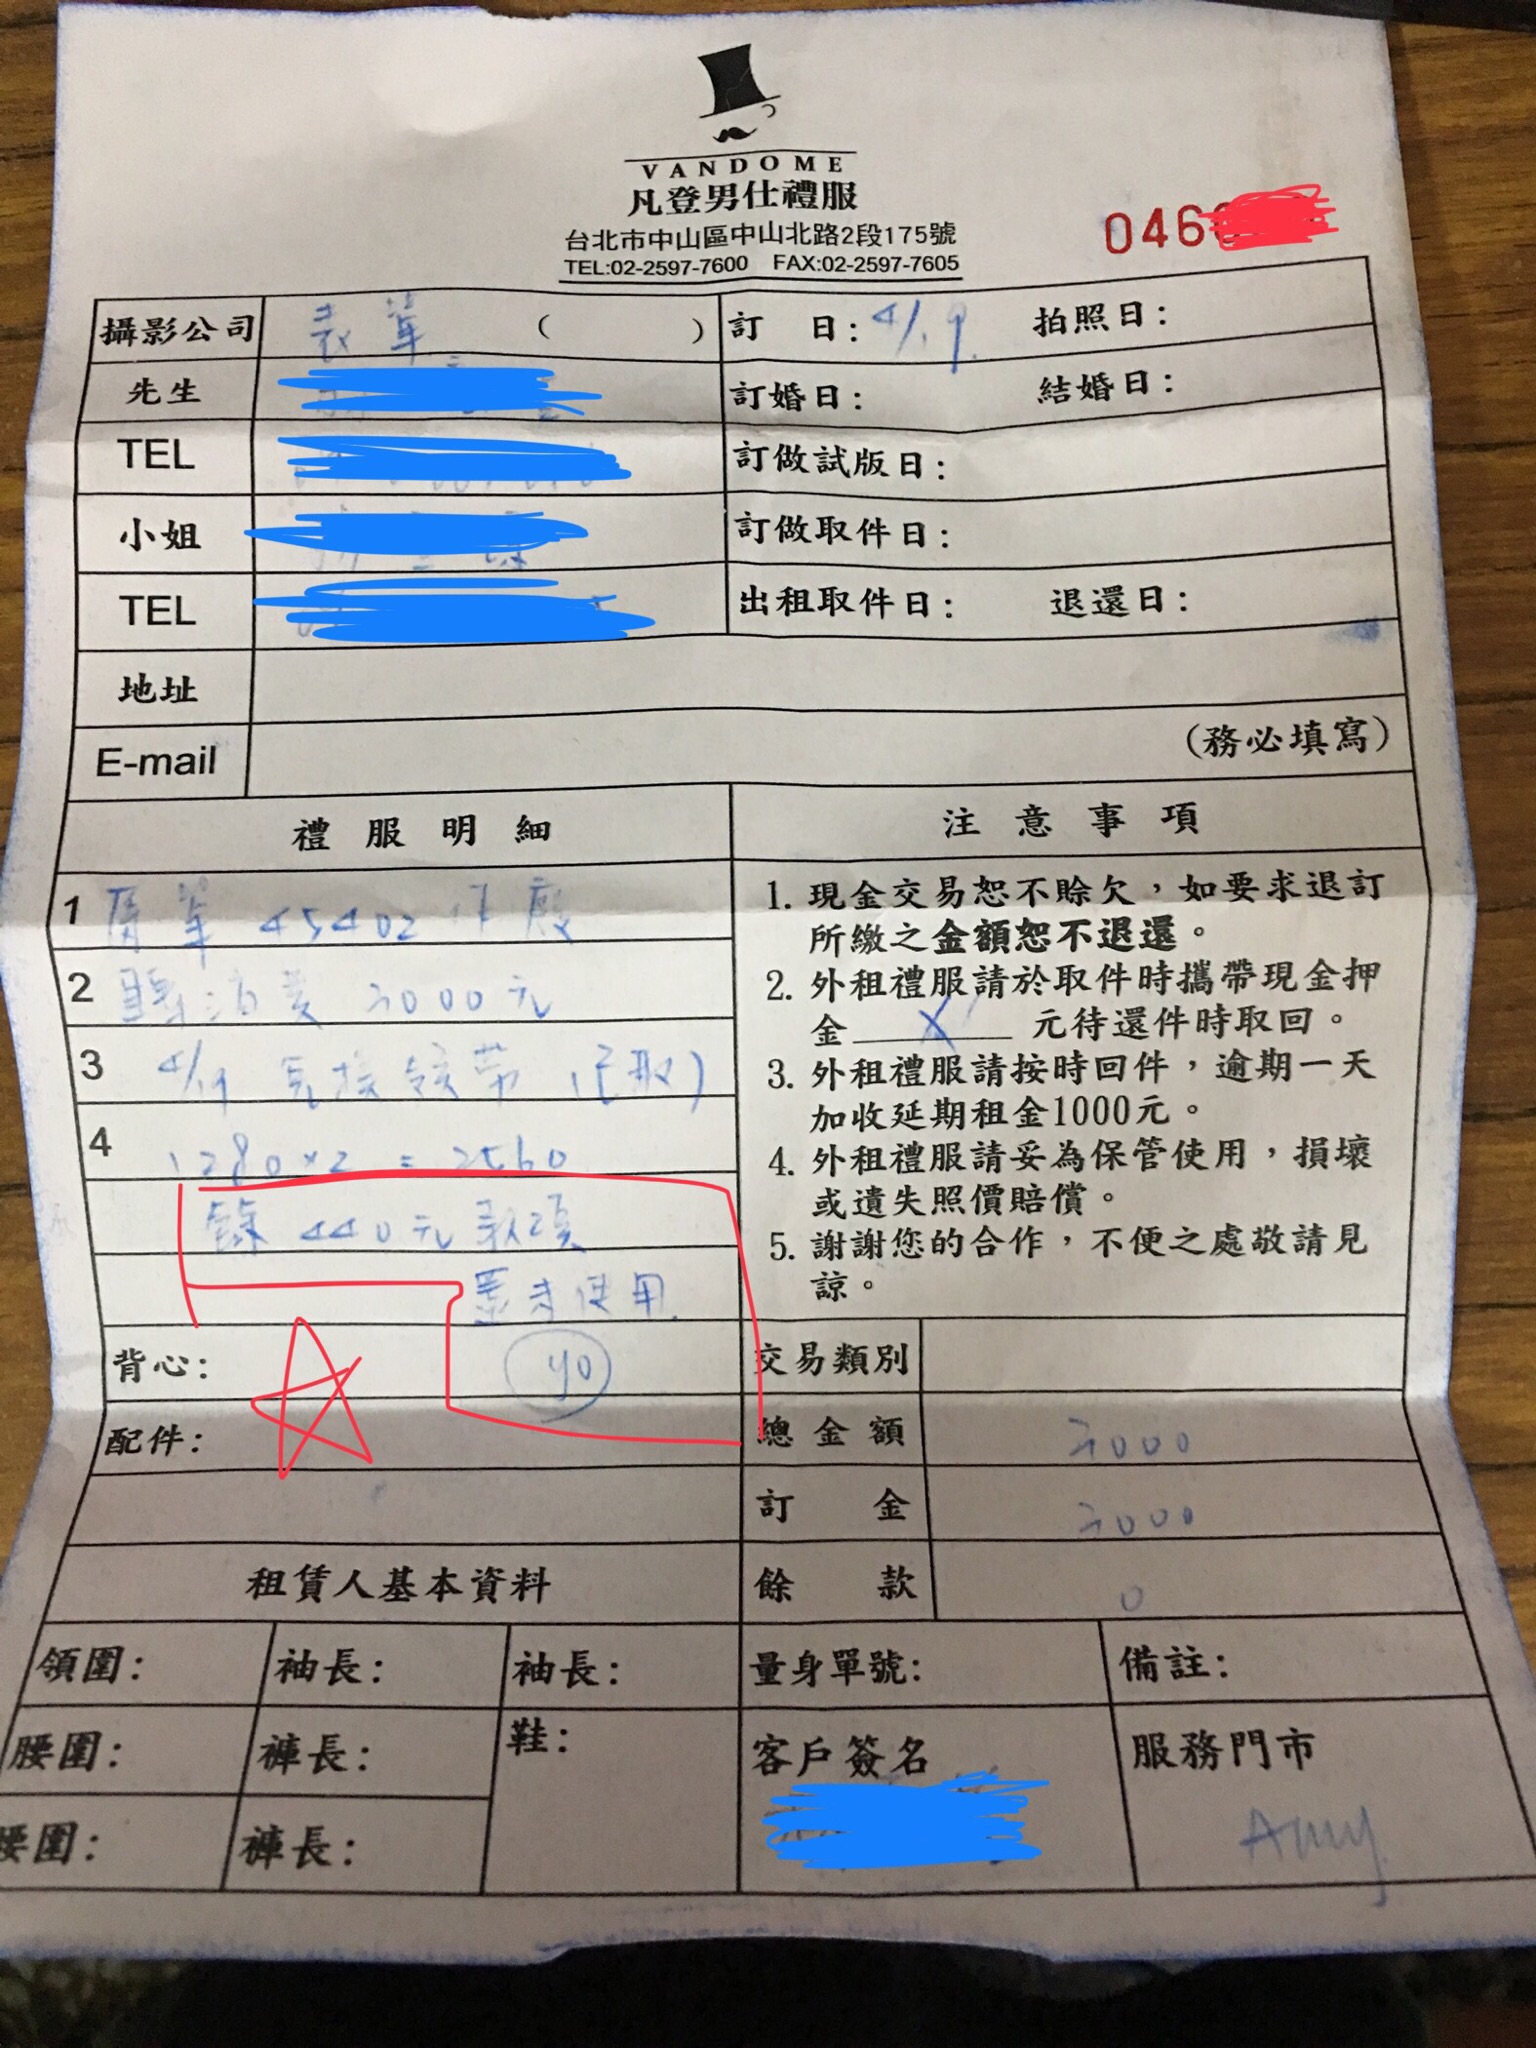 VANDOME
凡登男仕禮服
台北市中山區中山北路2段175號
TEL:02-2597-7600 FAX:02-2597-7605
046
攝影公司 ( ) 訂 日: 4/19. 拍照日:
先生 訂婚日: 結婚日:
TEL 訂做試版日:
小姐 訂做取件日:
TEL 出租取件日: 退還日:
地址
E-mail (務必填寫)
禮服明細
1 原單 45402 作廢
2 轉消費 3000元
3 4/19 兌換領帶 (已取)
4 1280×2 = 2560
餘 440元款項
還未使用.
背心:
配件:
注意事項
1. 現金交易恕不賒欠，如要求退訂
所繳之金額恕不退還。
2. 外租禮服請於取件時攜帶現金押
金 X 元待還件時取回。
3. 外租禮服請按時回件，逾期一天
加收延期租金1000元。
4. 外租禮服請妥為保管使用，損壞
或遺失照價賠償。
5. 謝謝您的合作，不便之處敬請見
諒。
交易類別
總金額 3000
訂 金 3000
餘 款 0
租賃人基本資料
領圍: 袖長: 袖長: 量身單號: 備註:
腰圍: 褲長: 鞋: 客戶簽名 服務門市
腰圍: 褲長: Amy